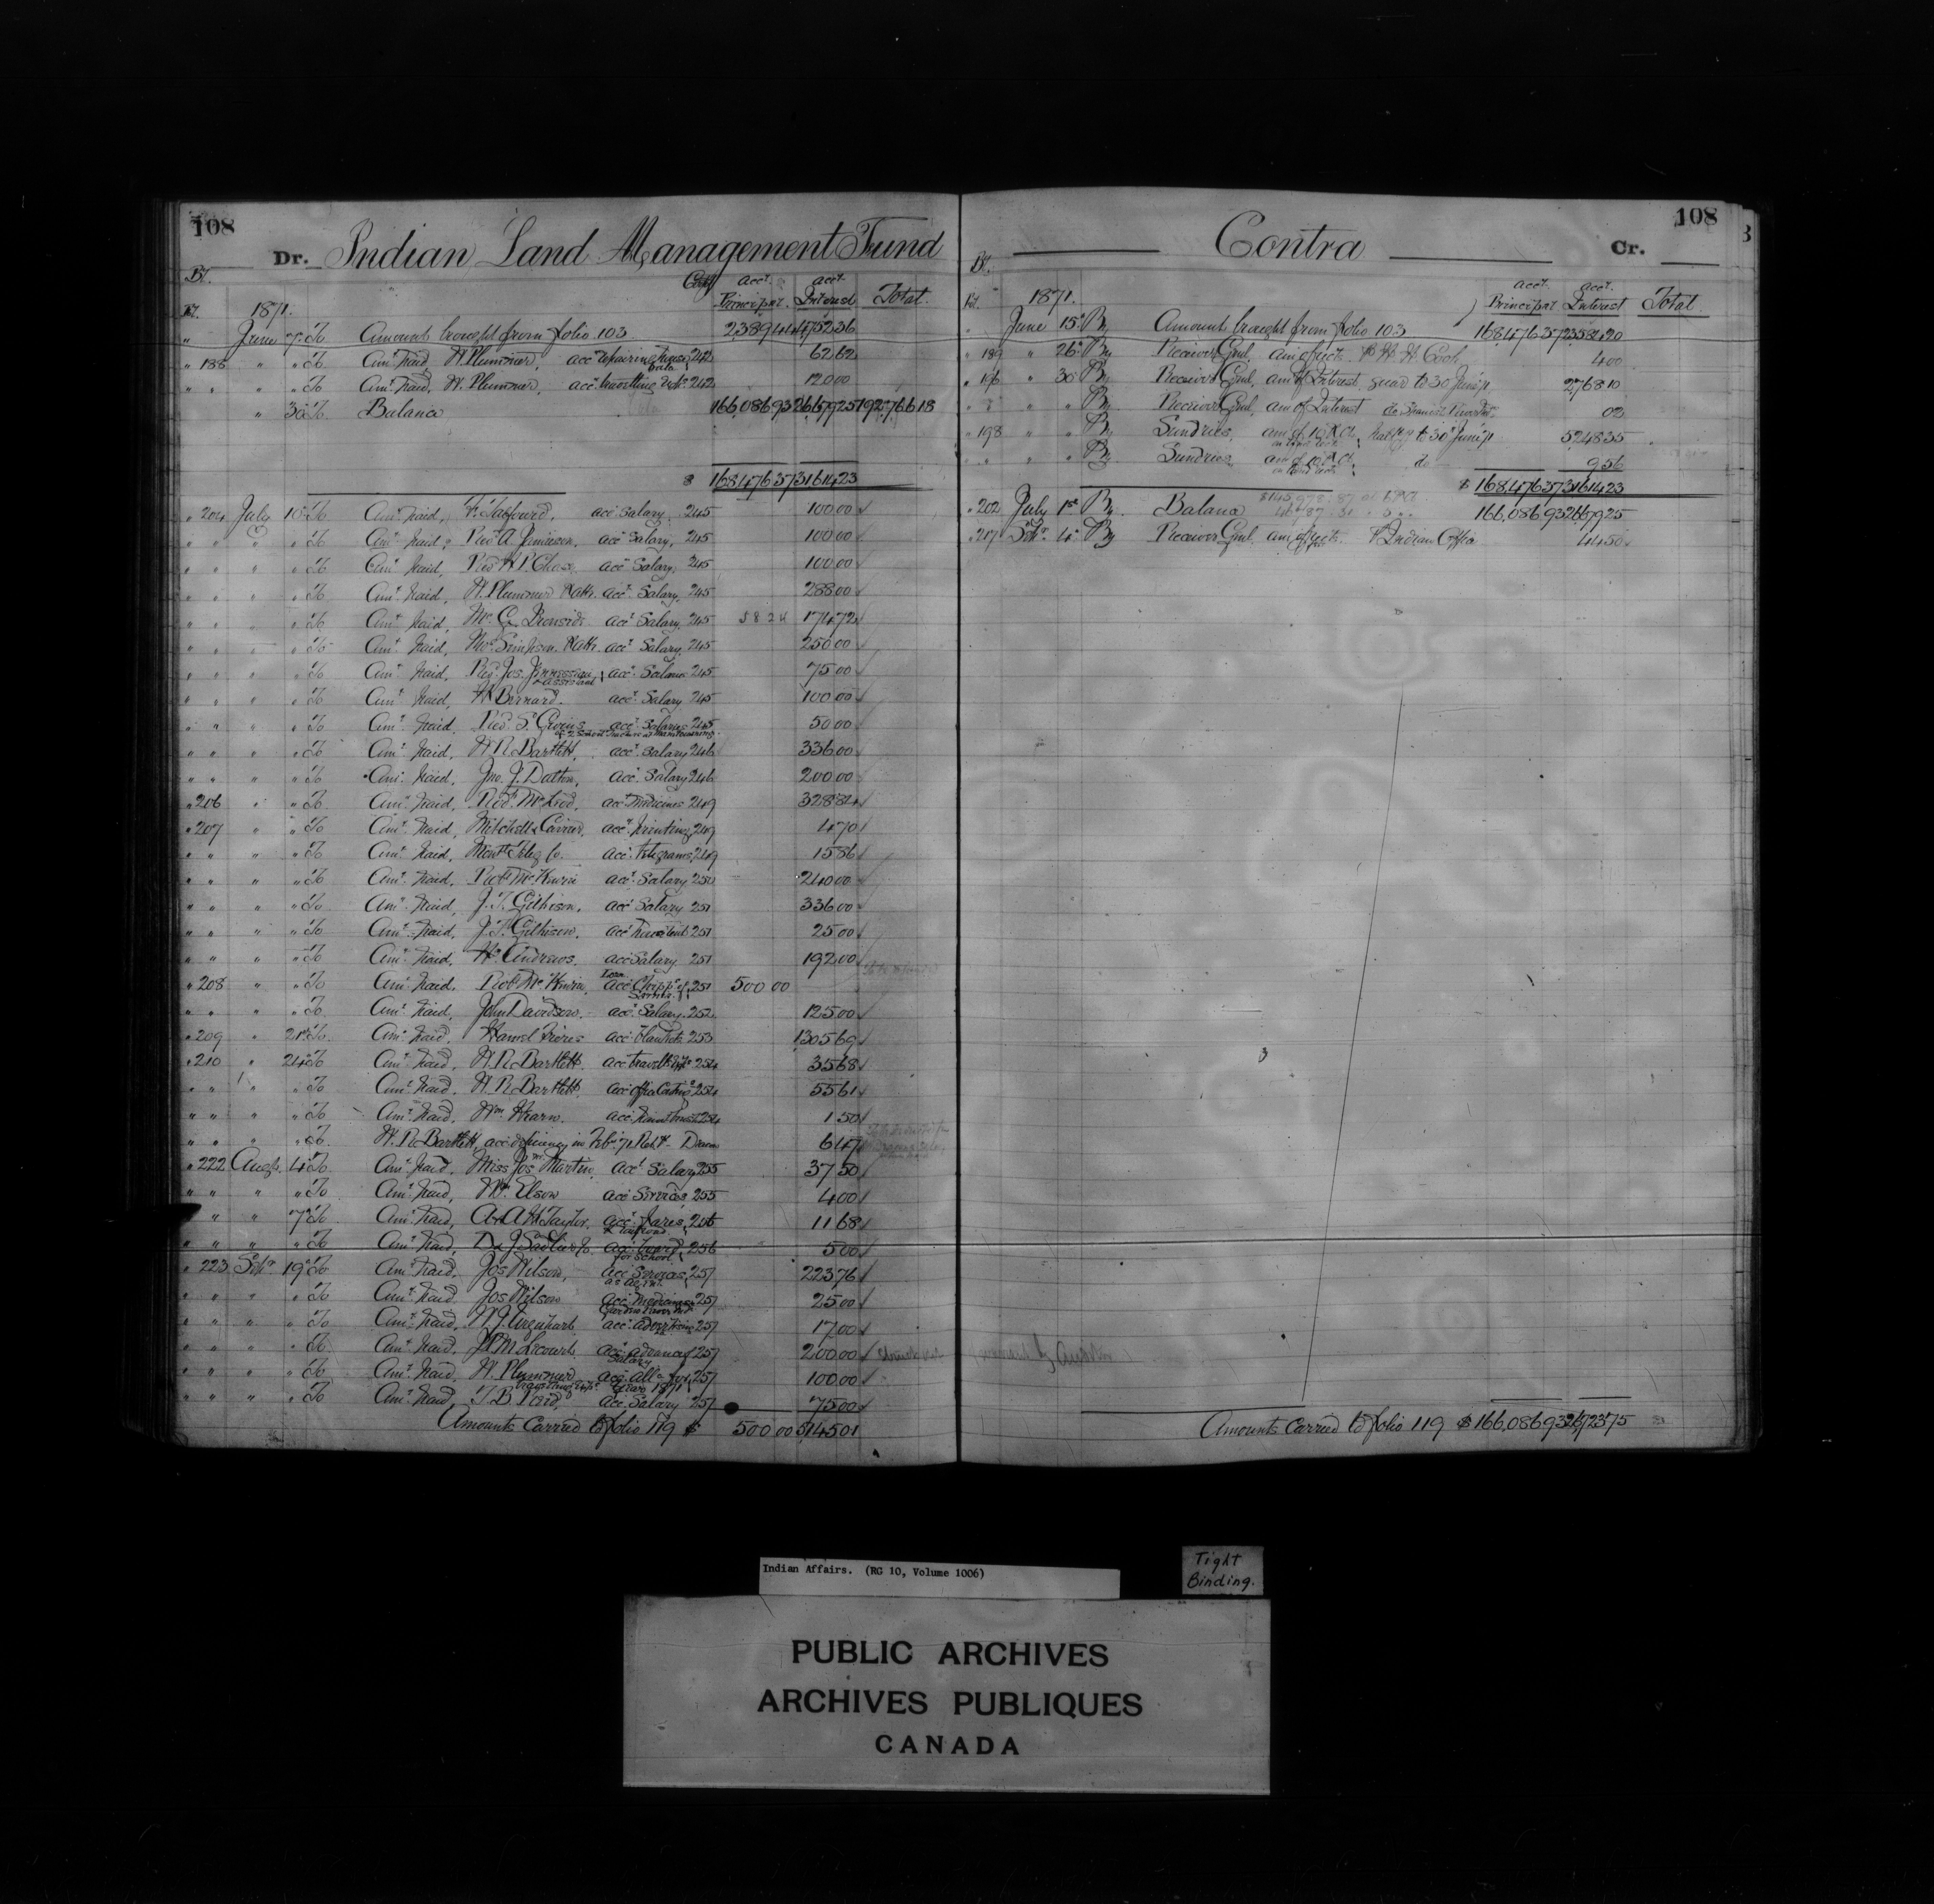 108
Dr. Indian Land Management Fund
Bt. 1871. acct. Principal. acct. Interest Total.
" June " To Amount brought from folio 103 2389 44 4752 36
" 186 " " To Amt. paid, W. Plummer, acct. repairing house 242 62 62
" " " " To Amt. paid, W. Plummer, acct. travelling Exps. 242 120 00
" 30 To Balance 166,086 93 26679 25 192766 18
$ 168,476 37 31614 23
" 204 July 10 To Amt. paid, F. Talfourd, acct. Salary, 245 100 00
" " " " To Amt. paid, Revd. A. Jamieson, acct. Salary, 245 100 00
" " " " To Amt. paid, Revd. H. P. Chase, acct. Salary, 245 100 00
" " " " To Amt. paid, W. Plummer acct. Salary, 245 288 00
" " " " To Amt. paid, acct. Salary, 245 58 24 174 72
" " " " To Amt. paid, Simpson acct. Salary, 245 250 00
" " " " To Amt. paid, Revd. Jos. & assistant acct. Salaries 245 75 00
" " " " To Amt. paid, acct. Salary 245 100 00
" " " " To Amt. paid, Revd. S. Givins acct. Salaries 245 50 00
" " " " To Amt. paid, W. R. Bartlett, acct. Salary 246 336 00
" " " " To Amt. paid, Jno. J. Dalton, acct. Salary 246 200 00
" 206 " " To Amt. paid, acct. Medicines 249 328 84
" 207 " " To Amt. paid, Mitchell & acct. printing, 249 4 70
" " " " To Amt. paid, Montl. Teleg Co. acct. telegrams, 249 15 86
" " " " To Amt. paid, acct. Salary 250 240 00
" " " " To Amt. paid, J. T. Gilkison, acct. Salary 251 336 00
" " " " To Amt. paid, J. T. Gilkison, acct. house rent 251 25 00
" " " " To Amt. paid, Andrews, acct. Salary 251 192 00
" 208 " " To Amt. paid, Loan acct. 251 500 00
" " " " To Amt. paid, John Davidson, acct. Salary, 252 125 00
" 209 " 21 To Amt. paid, acct. Blankets 253 1305 69
" 210 " 24 To Amt. paid, W. R. Bartlett, acct. travellg. Exps. 254 35 68
" " " " To Amt. paid, W. R. Bartlett, acct. office 254 55 61
" " " " To Amt. paid, Wm. Hearn. acct. 254 1 50
" " " " To W. R. Bartlett, acct. deficiency in Feb. 71 6 47
" 222 Augt. 4 To Amt. paid, Miss Jos. Martin, acct. Salary 255 37 50
" " " " To Amt. paid, Wm. Elson acct. Services 255 4 00
" " 7 To Amt. paid, Taylor, acct. 256 11 68
" " " " To Amt. paid, D & J Sadlier & Co. acct. for School 256 5 00
" 223 Sepr. 19 To Amt. paid, Jos Wilson, acct. Services as agent. 257 223 76
" " " " To Amt. paid, Jos Wilson acct. Medicines Garden River 257 25 00
" " " " To Amt. paid, W. J. Urquhart acct. advertising 257 17 00
" " " " To Amt. paid, J. P. M. Lecourt acct. advance of Salary 257 200 00
" " " " To Amt. paid, W. Plummer acct. all. for travelling Exps. 1871 257 100 00
" " " " To Amt. paid, acct. Salary 257 75 00
Amounts Carried to folio 119 $ 500 00 5145 01
108
Contra Cr.
Bt. 1871. acct. Principal acct. Interest Total
" June 15 By Amount brought from folio 103 168,476 37 23584 20
" 189 " 26 By Receiver Genl. W. Cook 4 00
" 196 " 30 By Receiver Genl. amt. of Interest to 30 June 71 2768 10
" " " " By Receiver Genl. amt. of Interest 02
" 198 " " By Sundries, to 30 June 71 5248 35
" " " " By Sundries, do 9 56
$ 168,476 37 31614 23
" 202 July 1st By Balance 166,086 93 26679 25
" 217 Sepr. 4 By Receiver Genl. Indian Office 44 50
Amounts Carried to folio 119 $ 166,086 93 26723 75
Indian Affairs. (RG 10, Volume 1006)
Tight
Binding.
PUBLIC ARCHIVES
ARCHIVES PUBLIQUES
CANADA